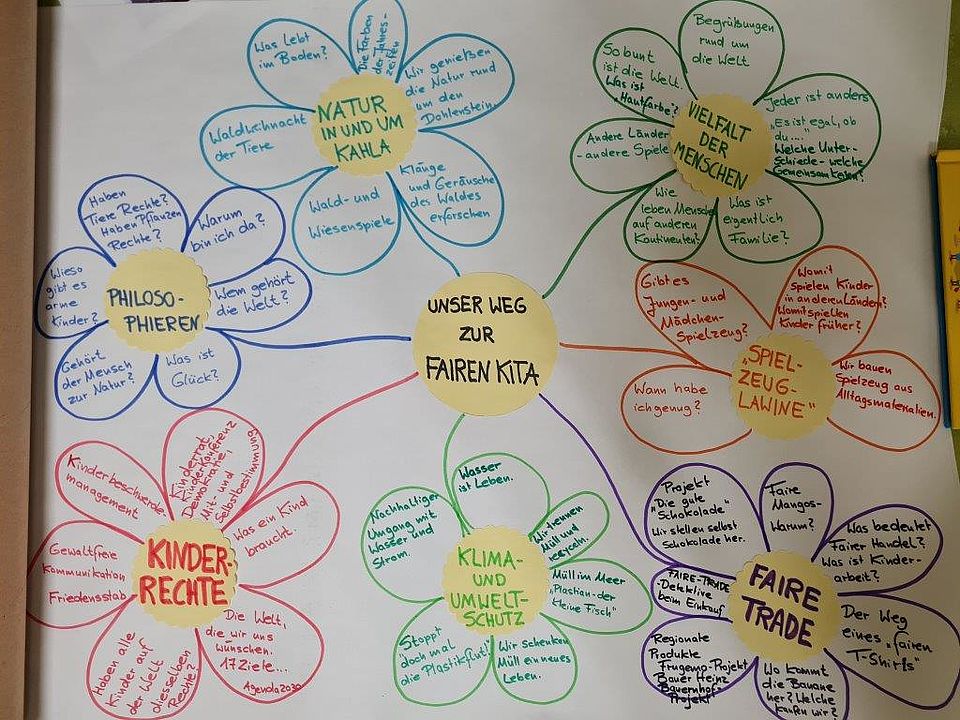 UNSER WEG
ZUR
FAIREN KITA
NATUR
IN UND UM
KAHLA
Was lebt
im Boden?
Die Farben
der Jahres-
zeiten
Wir genießen
die Natur rund
um den
Dohlenstein.
Klänge
und Geräusche
des Waldes
erforschen
Wald- und
Wiesenspiele
Waldweihnacht
der Tiere
VIELFALT
DER
MENSCHEN
Begrüßungen
rund um
die Welt
So bunt
ist die Welt.
Was ist
"Hautfarbe"?
Jeder ist anders
"Es ist egal, ob
du...."
Welche Unter-
schiede - welche
Gemeinsamkeiten?
Andere Länder
- andere Spiele
Wie
leben Menschen
auf anderen
Kontinenten?
Was ist
eigentlich
Familie?
PHILOSO-
PHIEREN
Haben
Tiere Rechte?
Haben Pflanzen
Rechte?
Warum
bin ich da?
Wem gehört
die Welt?
Was ist
Glück?
Gehört
der Mensch
zur Natur?
Wieso
gibt es
arme
Kinder?
"SPIEL-
ZEUG-
LAWINE"
Gibt es
Jungen- und
Mädchen-
Spielzeug?
Womit
spielen Kinder
in anderen Ländern?
Womit spielten
Kinder früher?
Wir bauen
Spielzeug aus
Alltagsmaterialien.
Wann habe
ich genug?
KINDER-
RECHTE
Kinderbeschwerde-
management
Kinderrat,
Kinderkonferenz
Demokratie,
Mit- und
Selbstbestimmung
Was ein Kind
braucht.
Die Welt,
die wir uns
wünschen.
17 Ziele...
Agenda 2030
Haben alle
Kinder auf
der Welt
dieselben
Rechte?
Gewaltfreie
Kommunikation
Friedensstab
KLIMA-
UND
UMWELT-
SCHUTZ
Wasser
ist Leben.
Nachhaltiger
Umgang mit
Wasser und
Strom.
Wir trennen
Müll und
recyceln.
Müll im Meer
"Plastian - der
kleine Fisch"
Wir schenken
Müll ein neues
Leben.
Stoppt
doch mal
die Plastikflut!
FAIRE
TRADE
Projekt
"Die gute
Schokolade"
Wir stellen selbst
Schokolade her.
Faire
Mangos-
Warum?
Was bedeutet
Fairer Handel?
Was ist Kinder-
arbeit?
Der Weg
eines "fairen
T-Shirts"
Wo kommt
die Banane
her? Welche
kaufen wir?
Regionale
Produkte
Frugemo-Projekt
Bauer Heinz
Bauernhof-
Projekt
FAIRE-TRADE-
Detektive
beim Einkauf